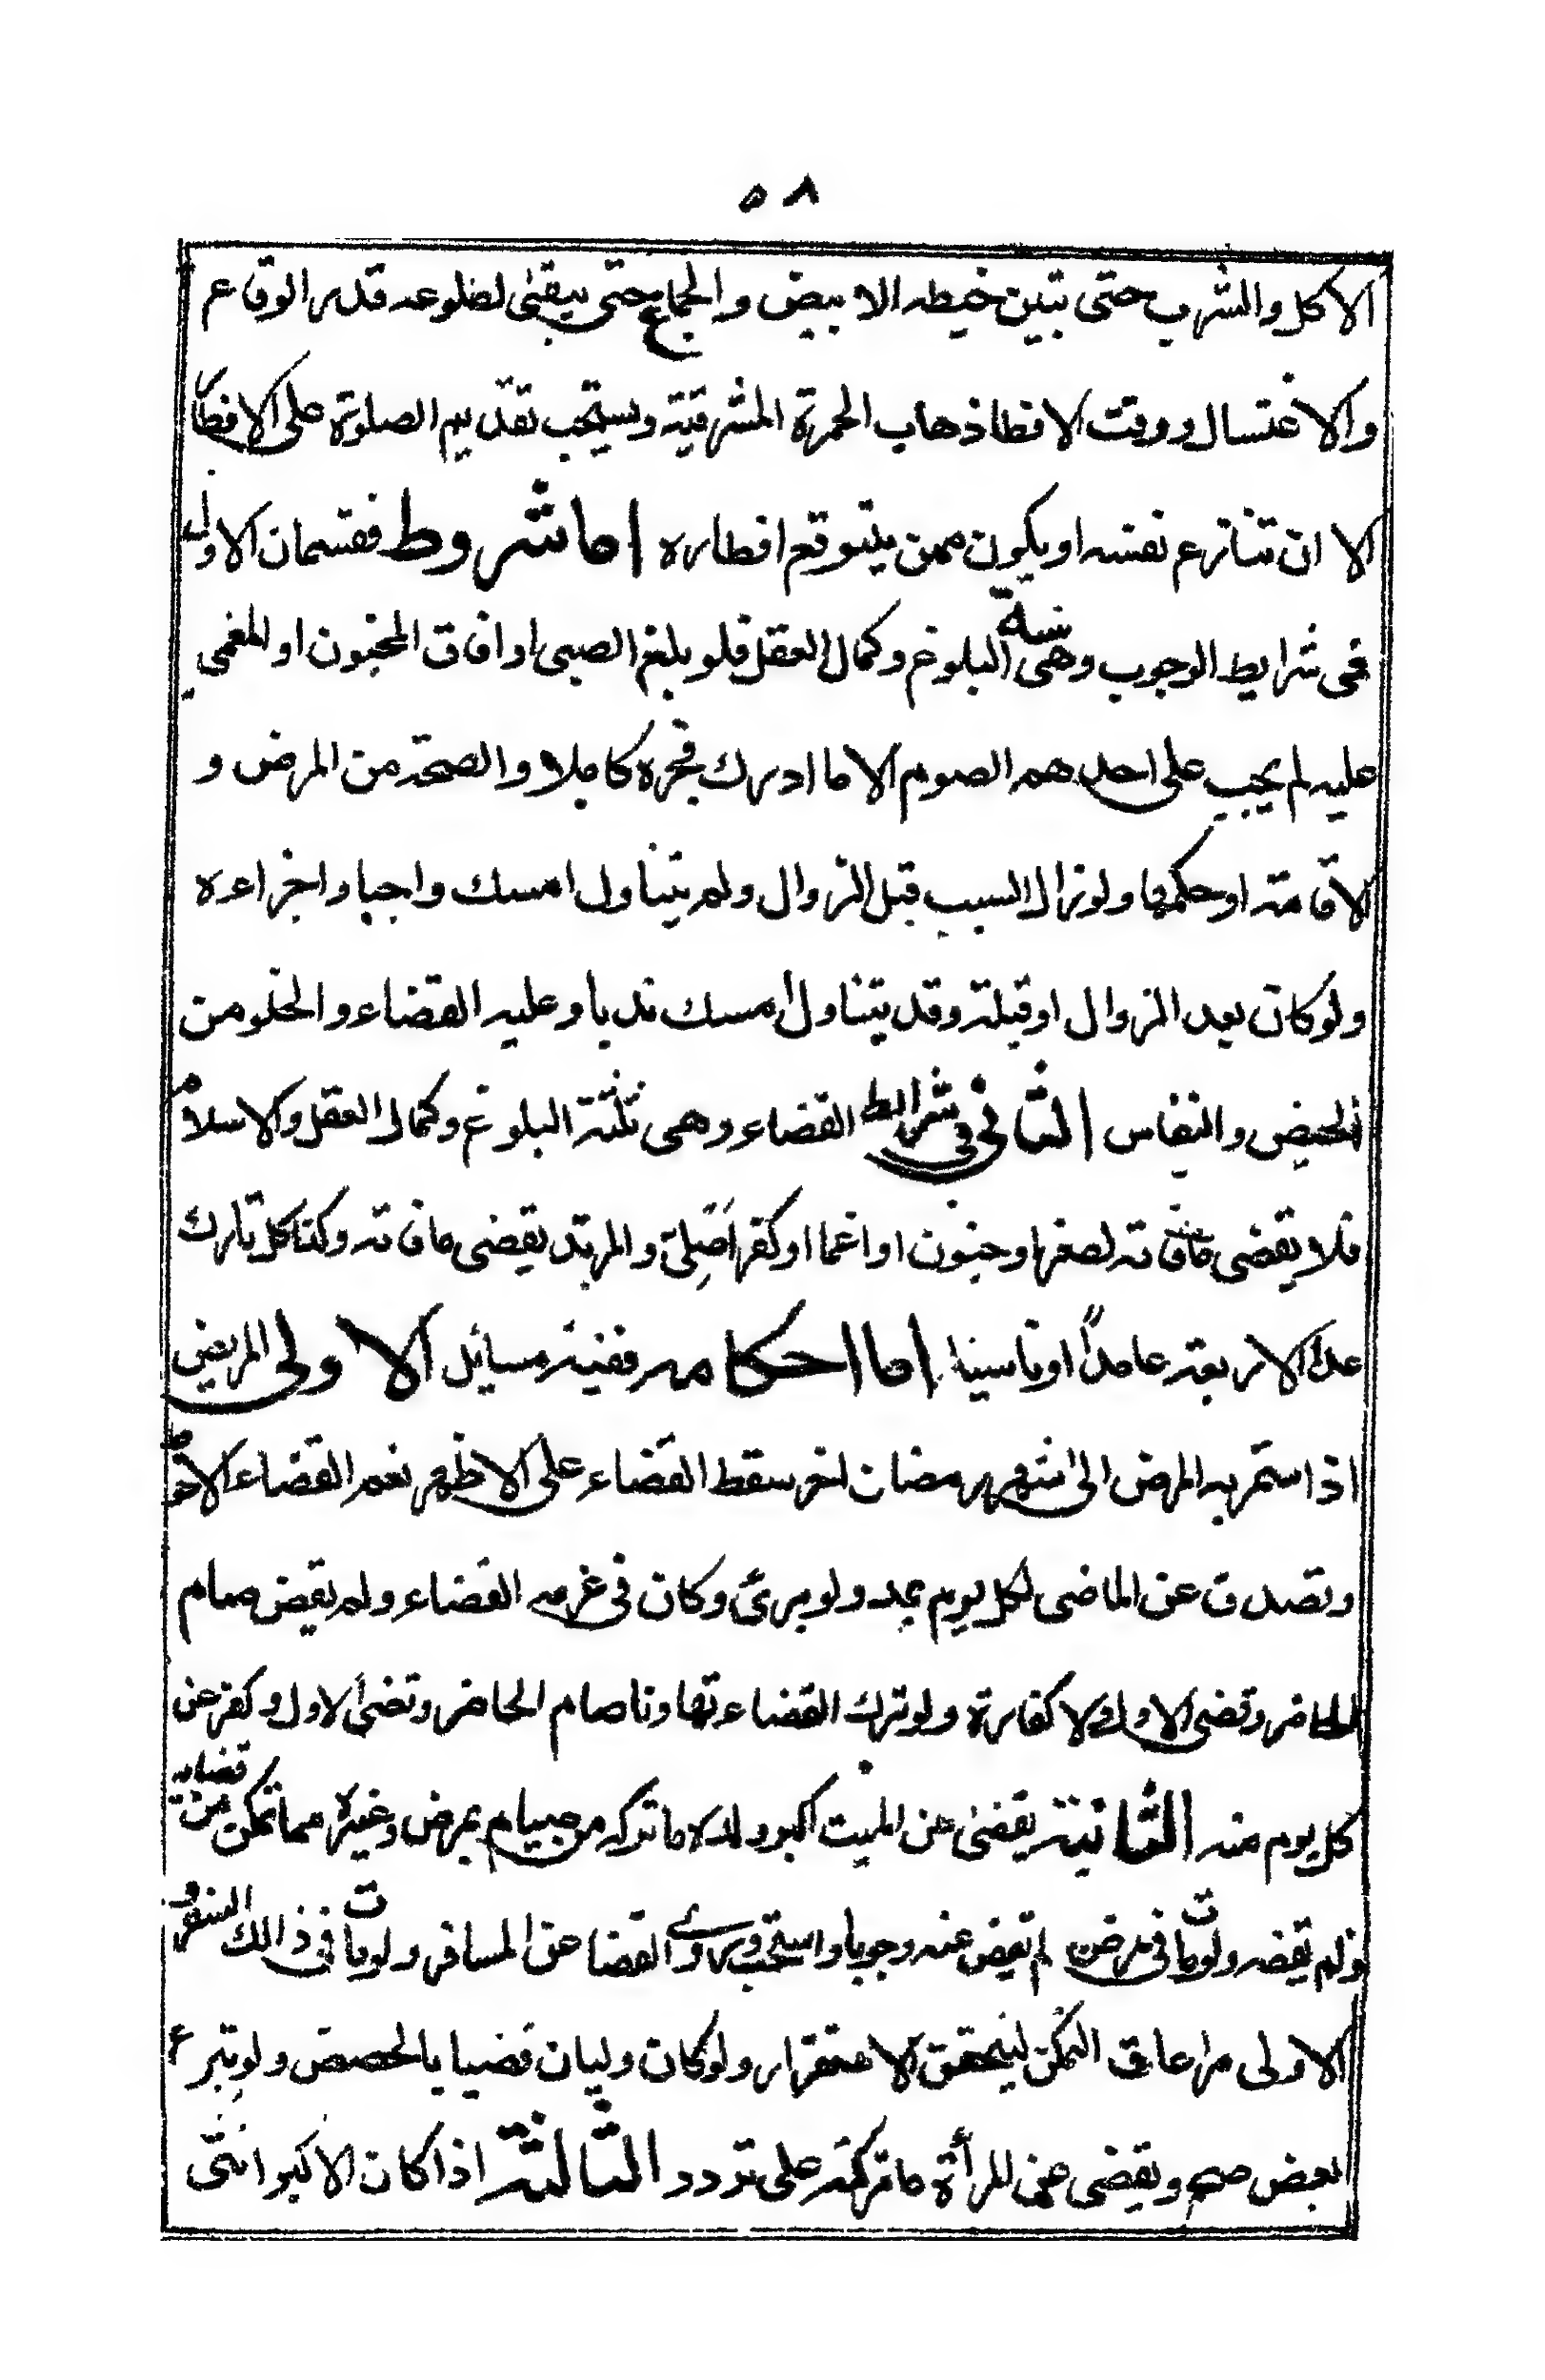 ٥٨
الاكل والشرب حتى تبين خيطه الابيض والجماع حتى يبقى لطلوعه قدر الوقاع
والاغتسال ووقت الافطا ذهاب الحمرة المشرقية ويستحب تقديم الصلوة على الافطار
الا ان تنازع نفسه او يكون ممن يتوقع افطاره اما شروط فقسمان الاول
فى شرايط الوجوب وهى ستة البلوغ وكمال العقل فلو بلغ الصبى او افاق المجنون او المغمى
عليه لم يجب على احدهم الصوم الا ما ادرك فجره كاملا والصحة من المرض و
الاقامة او حكمها ولو زال السبب قبل الزوال ولم يتناول امسك واجبا واجزاءه
ولو كان بعد الزوال او قبلة وقد يتناول امسك ندبا وعليه القضاء والخلو من
الحيض والنفاس الثانى فى شرايط القضاء وهى ثلثة البلوغ وكمال العقل والاسلام
فلا يقضى مافاته لصغر او جنون او اغما او كفر اصلى والمرتد يقضى مافاته وكذا كل تارك
عدا الاربعة عامدًا او ناسيا اما احكامه ففيه مسايل الاولى المريض
اذا استمر به المرض الى شهر رمضان اخر سقط القضاء على الاظهر نعم القضاء الاحوط
وتصدق عن الماضى لكل يوم بمد ولو برئ وكان فى عزمه القضاء ولم يقض صام
الحاضر وقضى الاول ولا كفارة ولو ترك القضاء تهاونا صام الحاضر وقضى الاول وكفر عن
كل يوم منه الثانية يقضى عن الميت اكبر ولده ما تركه من صيام بمرض وغيره مما تمكن من قضايه
ولم يقضه ولو مات فى مرض لم يقض عنه وجوبا واستحب وروى القضا عن المسافر ولو مات فى ذالك السفر و
الاولى مراعات التمكن ليتحقق الاستقرار ولو كان وليان قضيا بالحصص ولو تبرع
بعض صح ويقضى عن المرأة ما تركته على تردد الثالثة اذا كان الاكبر انثى